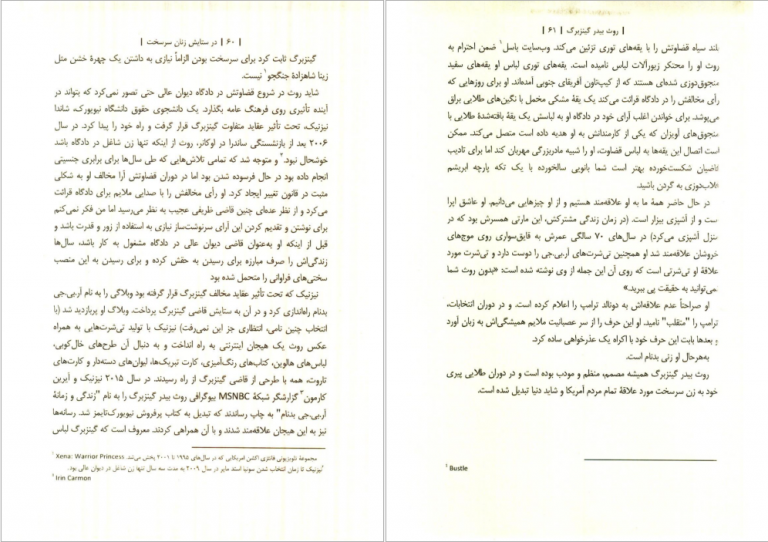 | ۶۰ | در ستایش زنان سرسخت |
گینزبرگ ثابت کرد برای سرسخت بودن الزاماً نیازی به داشتن یک چهرهٔ خشن مثل
زینا شاهزادهٔ جنگجو¹ نیست.
شاید روث در شروع قضاوتش در دادگاه دیوان عالی حتی تصور نمی‌کرد که بتواند در
آینده تأثیری روی فرهنگ عامه بگذارد. یک دانشجوی حقوق دانشگاه نیویورک، شاندا
نیزنیک، تحت تأثیر عقاید متفاوت گینزبرگ قرار گرفت و راه خود را پیدا کرد. در سال
۲۰۰۶ بعد از بازنشستگی ساندرا در اوکانر، روث از اینکه تنها زن شاغل در دادگاه باشد
خوشحال نبود.² و متوجه شد که تمامی تلاش‌هایی که طی سال‌ها برای برابری جنسیتی
انجام داده بود در حال فرسوده شدن بود اما در دوران قضاوتش آرا مخالف او به شکلی
مثبت در قانون تغییر ایجاد کرد. او رأی مخالفش را با صدایی ملایم برای دادگاه قرائت
می‌کرد و از نظر عده‌ای چنین قاضی ظریفی عجیب به نظر می‌رسید اما من فکر نمی‌کنم
برای نوشتن و تقدیم کردن این آرای سرنوشت‌ساز نیازی به استفاده از زور و قدرت باشد و
قبل از اینکه او به‌عنوان قاضی دیوان عالی در دادگاه مشغول به کار باشد، سال‌ها
زندگی‌اش را صرف مبارزه برای رسیدن به حقش کرده و برای رسیدن به این منصب
سختی‌های فراوانی را متحمل شده بود
نیزنیک که تحت تأثیر عقاید مخالف گینزبرگ قرار گرفته بود وبلاگی را به نام آر.بی.جی
بدنام راه‌اندازی کرد و در آن به ستایش قاضی گینزبرگ پرداخت. وبلاگ او پربازدید شد (با
انتخاب چنین نامی، انتظاری جز این نمی‌رفت) نیزنیک با تولید تی‌شرت‌هایی به همراه
عکس روث یک هیجان اینترنتی به راه انداخت و به دنبال آن طرح‌های خال‌کوبی،
لباس‌های هالوین، کتاب‌های رنگ‌آمیزی، کارت تبریک‌ها، لیوان‌های دسته‌دار و کارت‌های
تاروت، همه با طرحی از قاضی گینزبرگ از راه رسیدند. در سال ۲۰۱۵ نیزنیک و آیرین
کارمون³ گزارشگر شبکهٔ MSNBC بیوگرافی روث بیدر گینزبرگ را به نام "زندگی و زمانهٔ
آر.بی.جی بدنام" به چاپ رساندند که تبدیل به کتاب پرفروش نیویورک‌تایمز شد. رسانه‌ها
نیز به این هیجان علاقه‌مند شدند و با آن همراهی کردند. معروف است که گینزبرگ لباس
¹ Xena: Warrior Princess مجموعهٔ تلویزیونی فانتزی اکشن امریکایی که در سال‌های ۱۹۹۵ تا ۲۰۰۱ پخش می‌شد.
² نیزنیک تا زمان انتخاب شدن سونیا در سال ۲۰۰۹ به مدت سه سال تنها زن شاغل در دیوان عالی بود.
³ Irin Carmon
| روث بیدر گینزبرگ | ۶۱ |
بلند سیاه قضاوتش را با یقه‌های توری تزئین می‌کند. وب‌سایت باسل¹ ضمن احترام به
روث او را محتکر زیورآلات لباس نامیده است. یقه‌های توری لباس او یقه‌های سفید
منجوق‌دوزی شده‌ای هستند که از کیپ‌تاون آفریقای جنوبی آمده‌اند. او برای روزهایی که
رأی مخالفش را در دادگاه قرائت می‌کند یک یقهٔ مشکی مخمل با نگین‌های طلایی براق
می‌پوشد. برای خواندن اغلب آرای خود در دادگاه او به لباسش یک یقهٔ بافته‌شدهٔ طلایی با
منجوق‌های آویزان که یکی از کارمندانش به او هدیه داده است متصل می‌کند. ممکن
است اتصال این یقه‌ها به لباس قضاوت، او را شبیه مادربزرگی مهربان کند اما برای تادیب
قاضیان شکست‌خورده بهتر است شما بانویی سالخورده با یک تکه پارچه ابریشم
قلاب‌دوزی به گردن باشید.
در حال حاضر همهٔ ما به او علاقه‌مند هستیم و از او چیزهایی می‌دانیم. او عاشق اپرا
است و از آشپزی بیزار است. (در زمان زندگی مشترکش، این مارتی همسرش بود که در
منزل آشپزی می‌کرد) در سال‌های ۷۰ سالگی عمرش به قایق‌سواری روی موج‌های
خروشان علاقه‌مند شد او همچنین تی‌شرت‌های آر.بی.جی را دوست دارد و تی‌شرت مورد
علاقهٔ او تی‌شرتی است که روی آن این جمله از وی نوشته شده است: «بدون روث شما
نمی‌توانید به حقیقت پی ببرید.»
او صراحتاً عدم علاقه‌اش به دونالد ترامپ را اعلام کرده است. و در دوران انتخابات،
ترامپ را "متقلب" نامید. او این حرف را از سر عصبانیت ملایم همیشگی‌اش به زبان آورد
و بعدها بابت این حرف خود با اکراه یک عذرخواهی ساده کرد.
به‌هرحال او زنی بدنام است.
روث بیدر گینزبرگ همیشه مصمم، منظم و مودب بوده است و در دوران طلایی پیری
خود به زن سرسخت مورد علاقهٔ تمام مردم آمریکا و شاید دنیا تبدیل شده است.
¹ Bustle